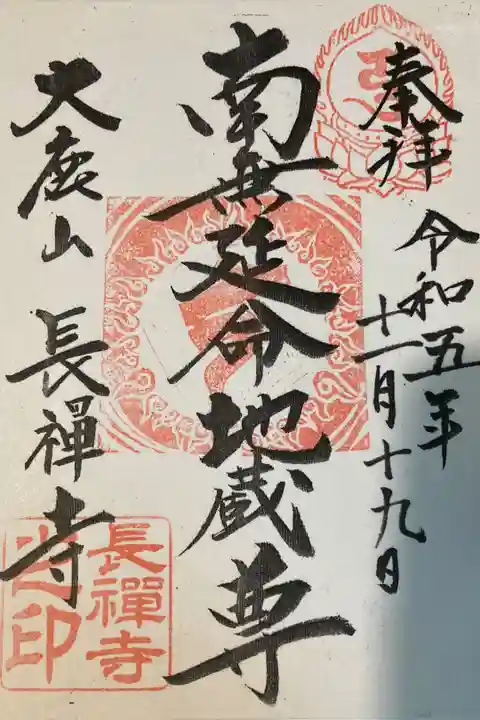 奉拝
令和五年
十一月十九日
南無延命地蔵尊
大鹿山 長禅寺
長禪寺
印